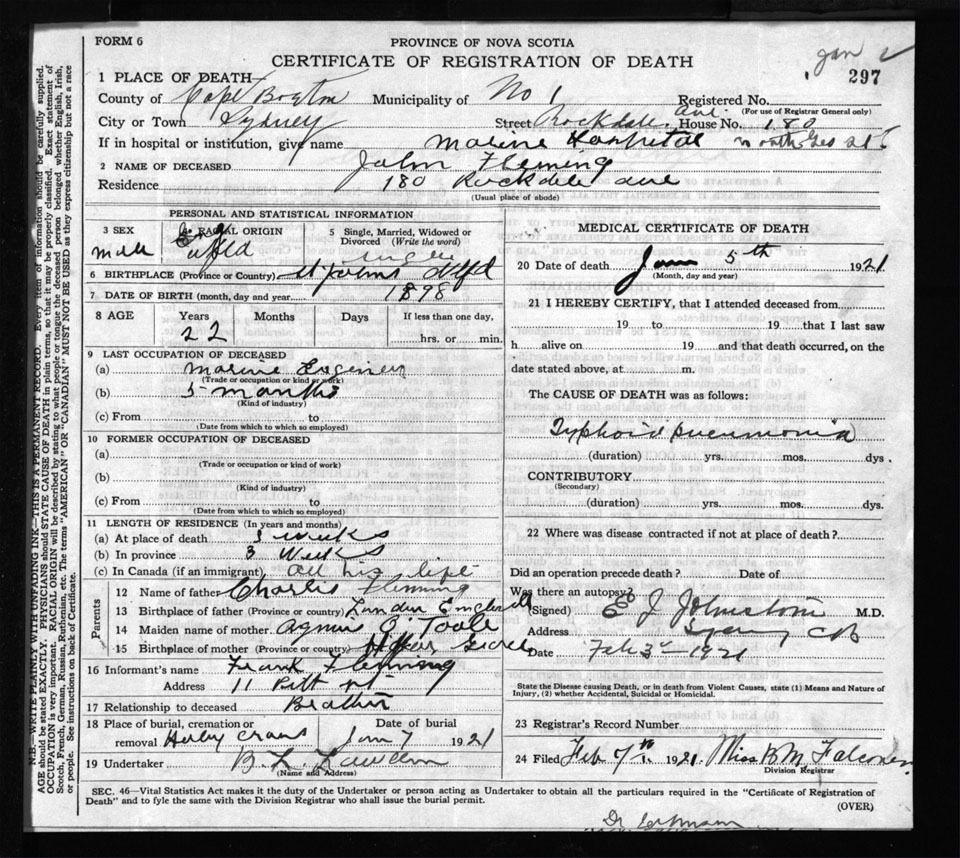 FORM 6
PROVINCE OF NOVA SCOTIA
CERTIFICATE OF REGISTRATION OF DEATH
Jan
297
1 PLACE OF DEATH
County of Cape Breton Municipality of No 1 Registered No.
(For use of Registrar General only)
City or Town Sydney Street Rockdale Ave. House No. 180
If in hospital or institution, give name Marine Hospital
2 NAME OF DECEASED John Fleming
Residence 180 Rockdale Ave
(Usual place of abode)
PERSONAL AND STATISTICAL INFORMATION
3 SEX 4 RACIAL ORIGIN 5 Single, Married, Widowed or Divorced (Write the word)
Male Nfld Single
6 BIRTHPLACE (Province or Country) St Johns Nfld
7 DATE OF BIRTH (month, day and year) 1898
8 AGE Years Months Days If less than one day,
22 hrs. or min.
9 LAST OCCUPATION OF DECEASED
(a) Marine Engineer
(Trade or occupation or kind or work)
(b) 5 months
(Kind of industry)
(c) From to
(Date from which to which so employed)
10 FORMER OCCUPATION OF DECEASED
(a)
(Trade or occupation or kind of work)
(b)
(Kind of industry)
(c) From to
(Date from which to which so employed)
11 LENGTH OF RESIDENCE (In years and months)
(a) At place of death 3 weeks
(b) In province 3 weeks
(c) In Canada (if an immigrant) all his life
Parents
12 Name of father Charlis Flemming
13 Birthplace of father (Province or country) London England
14 Maiden name of mother Agnes O'Toole
15 Birthplace of mother (Province or country)
16 Informant's name Frank Flemming
Address 11 Pitt st
17 Relationship to deceased Brother
18 Place of burial, cremation or Date of burial
removal Holy Cross Jan 7 1921
19 Undertaker B. L.
(Name and Address)
MEDICAL CERTIFICATE OF DEATH
20 Date of death Jan 5th 1921
(Month, day and year)
21 I HEREBY CERTIFY, that I attended deceased from
19 to 19 that I last saw
h alive on 19 and that death occurred, on the
date stated above, at m.
The CAUSE OF DEATH was as follows:
Typhoid pneumonia
(duration) yrs. mos. dys.
CONTRIBUTORY
(Secondary)
(duration) yrs. mos. dys.
22 Where was disease contracted if not at place of death?
Did an operation precede death? Date of
Was there an autopsy?
(Signed) J Johnstone M.D.
Address Sydney CB
Date Feb 3rd 1921
State the Disease causing Death, or in death from Violent Causes, state (1) Means and Nature of
Injury, (2) whether Accidental, Suicidal or Homicidal.
23 Registrar's Record Number
24 Filed Feb 7th 1921. Miss B M Falconer
Division Registrar
SEC. 46—Vital Statistics Act makes it the duty of the Undertaker or person acting as Undertaker to obtain all the particulars required in the "Certificate of Registration of
Death" and to fyle the same with the Division Registrar who shall issue the burial permit.
(OVER)
Dr
N.B.—WRITE PLAINLY WITH UNFADING INK—THIS IS A PERMANENT RECORD. Every item of information should be carefully supplied.
AGE should be stated EXACTLY. PHYSICIANS should STATE CAUSE OF DEATH in plain terms, so that it may be properly classified. Exact statement of
OCCUPATION is very important. RACIAL ORIGIN will be described by stating to what people or tongue the deceased person belonged whether English, Irish,
Scotch, French, German, Russian, Ruthenian, etc. The terms "AMERICAN" OR "CANADIAN" MUST NOT BE USED as they express citizenship but not a race
or people. See instructions on back of Certificate.